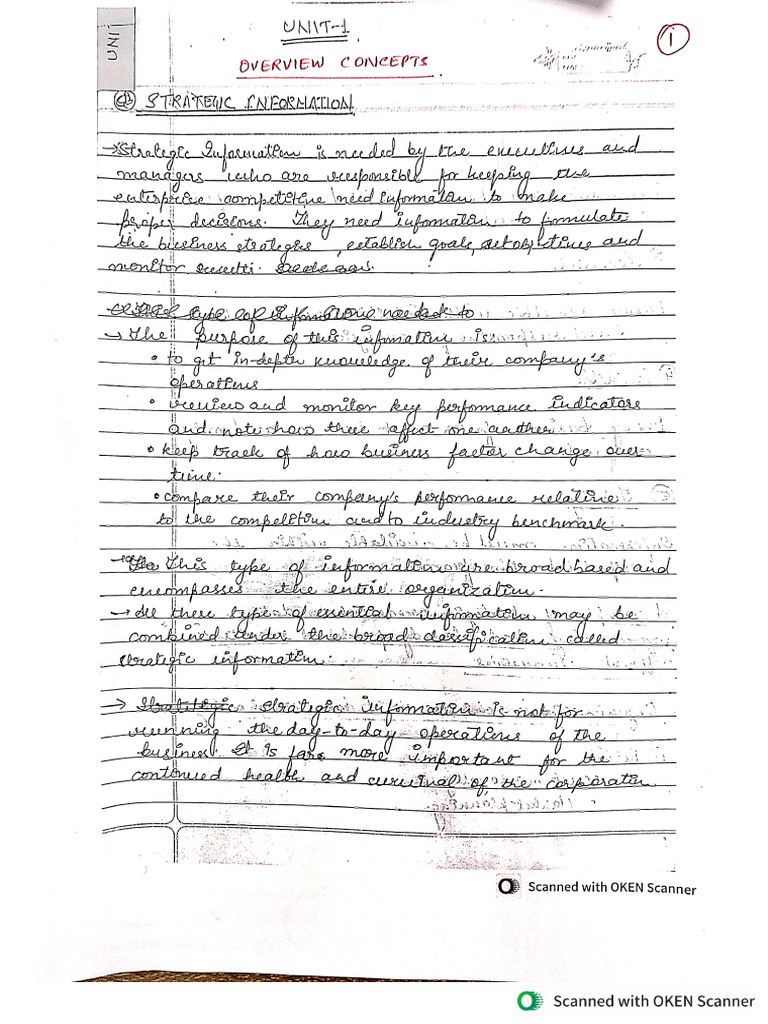 UNIT-1
1
UNI
OVERVIEW CONCEPTS
STRATEGIC INFORMATION
→ Strategic Information is needed by the executives and
managers who are responsible for keeping the
enterprise competitive need information to make
proper decisions. They need information to formulate
the business strategies, establish goals, set objectives and
monitor results.
type of information needed to
→ The purpose of this information is:
• to get in-depth knowledge of their company's
operations
• review and monitor key performance indicators
and note how these affect one another
• keep track of how business factor change over
time.
• compare their company's performance relative
to the competition and to industry benchmark.
→ This type of information are broad based and
encompasses the entire organization.
→ All these type of essential information may be
combined under the broad classification called
strategic information.
→ Strategic strategic information is not for
running the day-to-day operations of the
business. It is far more important for the
continued health and survival of the corporation
Scanned with OKEN Scanner
Scanned with OKEN Scanner